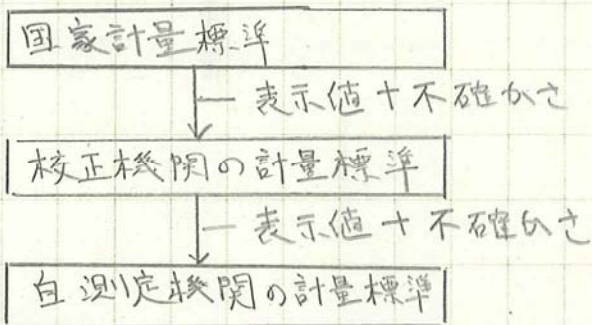 国家計量標準
表示値+不確かさ
校正機関の計量標準
表示値+不確かさ
自測定機関の計量標準